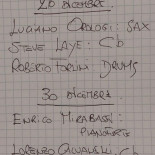 20 DICEMBRE
LUCIANO OROLOGI: SAX
STEVE LAYE: Cb
ROBERTO DRUM DRUMS
30 DICEMBRE
ENRICO MIRABASSI:
PIANOFORTE
LORENZO Cb